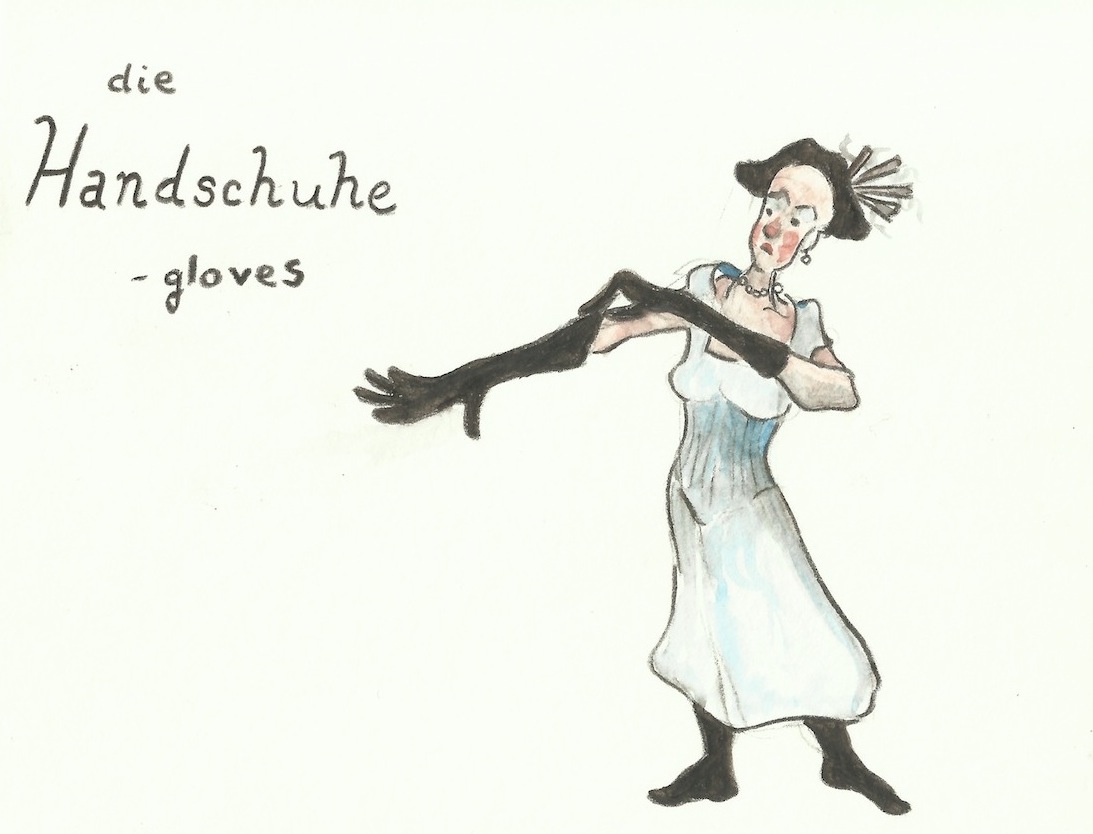 die
Handschuhe
- gloves